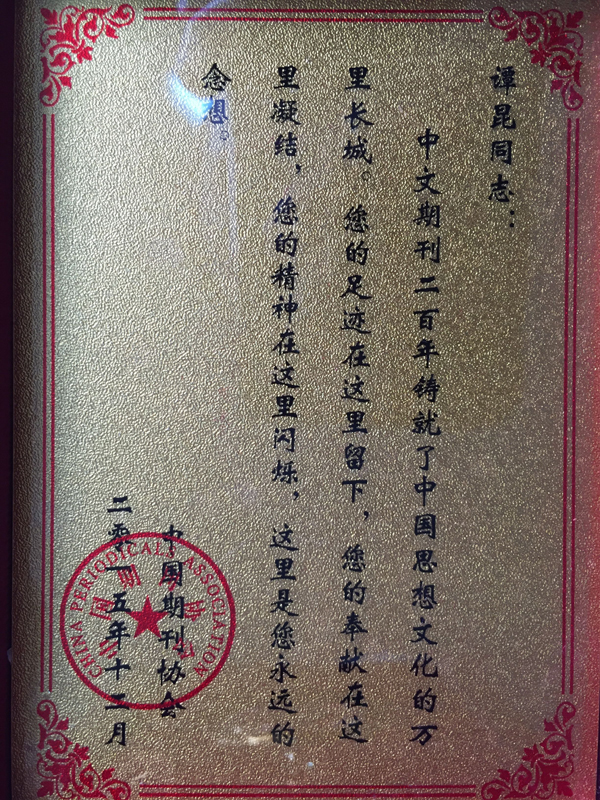 谭昆同志：
中文期刊二百年铸就了中国思想文化的万
里长城。您的足迹在这里留下，您的奉献在这
里凝结，您的精神在这里闪烁，这里是您永远的
念想。
中国期刊协会
二零一五年十二月
CHINA PERIODICALS ASSOCIATION
中国期刊协会